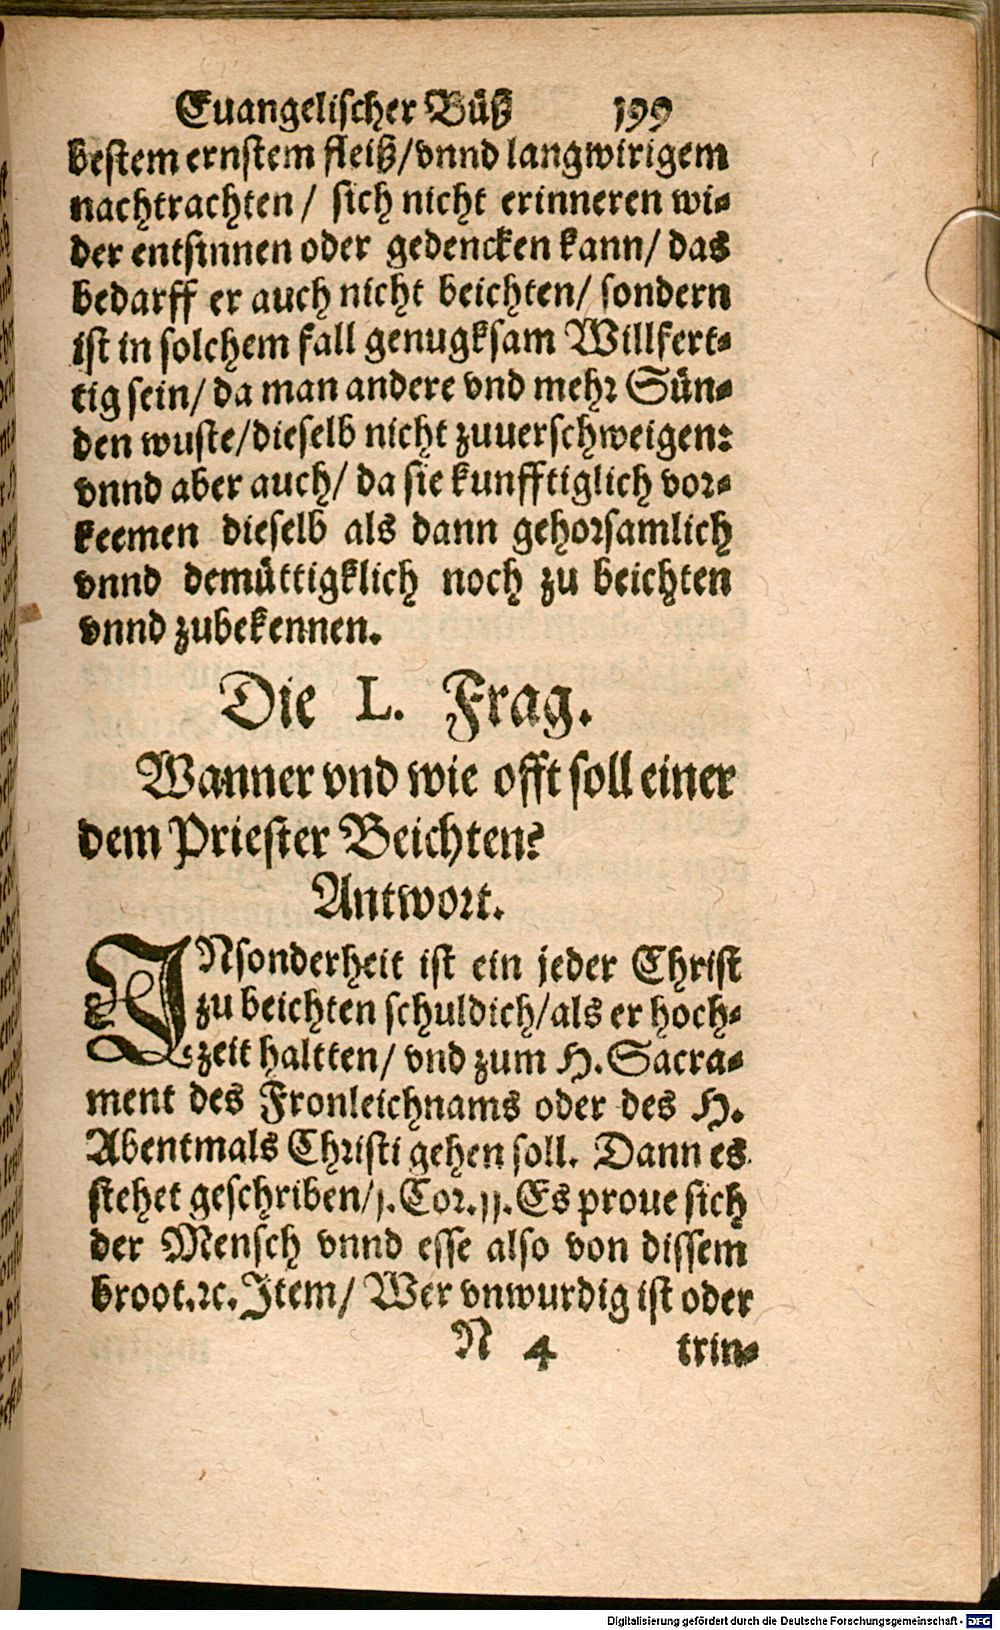 Euangelischer Büß 199
bestem ernstem fleiß/vnnd langwirigem
nachtrachten/ sich nicht erinneren wi-
der entsinnen oder gedencken kann/ das
bedarff er auch nicht beichten/ sondern
ist in solchem fall genugksam Willfert-
tig sein/ da man andere vnd mehr Sün-
den wuste/dieselb nicht zuuerschweigen:
vnnd aber auch/ da sie kunfftiglich vor-
keemen dieselb als dann gehorsamlich
vnnd demüttigklich noch zu beichten
vnnd zubekennen.
Die L. Frag.
Wanner vnd wie offt soll einer
dem Priester Beichten?
Antwort.
INsonderheit ist ein jeder Christ
zu beichten schuldich/als er hoch-
zeit haltten/ vnd zum H. Sacra-
ment des Fronleichnams oder des H.
Abentmals Christi gehen soll. Dann es
stehet geschriben/1. Cor. 11. Es proue sich
der Mensch vnnd esse also von dissem
broot.ꝛc. Item/ Wer vnwurdig ist oder
N 4 trin-
Digitalisierung gefördert durch die Deutsche Forschungsgemeinschaft - DFG